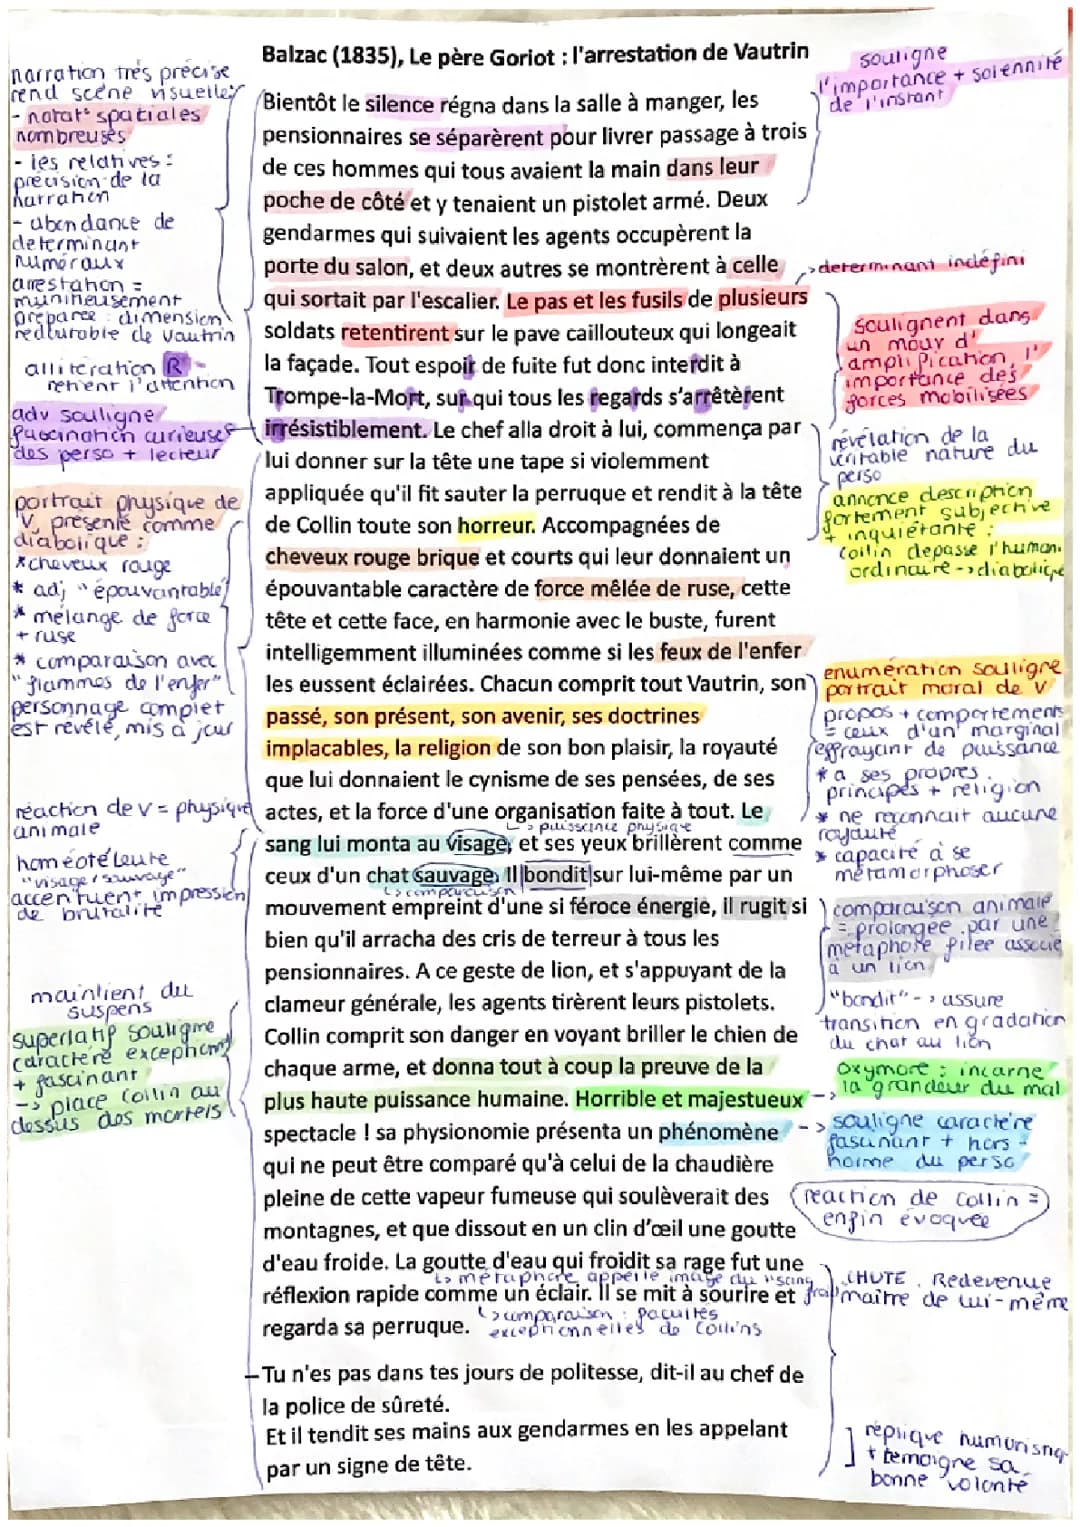 Balzac (1835), Le père Goriot : l'arrestation de Vautrin
narration très précise
rend scène visuelle
- notat° spatiales
nombreuses
- les relatives :
précision de la
narration
- abondance de
determinant
numéraux
arrestation =
munitieusement
préparée : dimension
redoutable de Vautrin
alliteration R
retient l'attention
adv souligne
fascination curieuse
des perso + lecteur
portrait physique de
V, présenté comme
diabolique :
*cheveux rouge
* adj "épouvantable"
* mélange de force
+ ruse
* comparaison avec
"flammes de l'enfer"
personnage complet
est révélé, mis à jour
réaction de V = physique
animale
homéotéleute
"visage/sauvage"
accentuent impression
de brutalité
maintient du
suspens
superlatif souligne
caractère exceptionnel
+ fascinant
-> place Collin au
dessus des mortels
Bientôt le silence régna dans la salle à manger, les
pensionnaires se séparèrent pour livrer passage à trois
de ces hommes qui tous avaient la main dans leur
poche de côté et y tenaient un pistolet armé. Deux
gendarmes qui suivaient les agents occupèrent la
porte du salon, et deux autres se montrèrent à celle
qui sortait par l'escalier. Le pas et les fusils de plusieurs
soldats retentirent sur le pave caillouteux qui longeait
la façade. Tout espoir de fuite fut donc interdit à
Trompe-la-Mort, sur qui tous les regards s'arrêtèrent
irrésistiblement. Le chef alla droit à lui, commença par
lui donner sur la tête une tape si violemment
appliquée qu'il fit sauter la perruque et rendit à la tête
de Collin toute son horreur. Accompagnées de
cheveux rouge brique et courts qui leur donnaient un
épouvantable caractère de force mêlée de ruse, cette
tête et cette face, en harmonie avec le buste, furent
intelligemment illuminées comme si les feux de l'enfer
les eussent éclairées. Chacun comprit tout Vautrin, son
passé, son présent, son avenir, ses doctrines
implacables, la religion de son bon plaisir, la royauté
que lui donnaient le cynisme de ses pensées, de ses
actes, et la force d'une organisation faite à tout. Le
-> puissance physique
sang lui monta au visage, et ses yeux brillèrent comme
ceux d'un chat sauvage. Il bondit sur lui-même par un
-> comparaison
mouvement empreint d'une si féroce énergie, il rugit si
bien qu'il arracha des cris de terreur à tous les
pensionnaires. A ce geste de lion, et s'appuyant de la
clameur générale, les agents tirèrent leurs pistolets.
Collin comprit son danger en voyant briller le chien de
chaque arme, et donna tout à coup la preuve de la
plus haute puissance humaine. Horrible et majestueux
spectacle ! sa physionomie présenta un phénomène
qui ne peut être comparé qu'à celui de la chaudière
pleine de cette vapeur fumeuse qui soulèverait des
montagnes, et que dissout en un clin d'œil une goutte
d'eau froide. La goutte d'eau qui froidit sa rage fut une
-> métaphore appelle image du "sang
réflexion rapide comme un éclair. Il se mit à sourire et
-> comparaison : facultés
regarda sa perruque.
exceptionnelles de Collins
-Tu n'es pas dans tes jours de politesse, dit-il au chef de
la police de sûreté.
Et il tendit ses mains aux gendarmes en les appelant
par un signe de tête.
souligne
l'importance + solennité
de l'instant
-> determinant indéfini
soulignent dans
un mouv d'
amplification, l'
importance des
forces mobilisées
révélation de la
véritable nature du
perso
annonce description
fortement subjective
+ inquiétante :
Collin depasse l'human.
ordinaire -> diabolique
enumération souligne
portrait moral de V
propos + comportements
= ceux d'un marginal
effrayant de puissance
* a ses propres
principes + religion
* ne reconnait aucune
royauté
* capacité à se
métamorphoser
comparaison animale
= prolongée par une
métaphore filée associé
à un lion
"bondit" -> assure
transition en gradation
du chat au lion
oxymore : incarne
la grandeur du mal
-> souligne caractère
fascinant + hors-
norme du perso
réaction de Collin =
enfin évoquée
CHUTE. Redevenue
maître de lui-même
réplique humoristiq
+ témoigne sa
bonne volonté